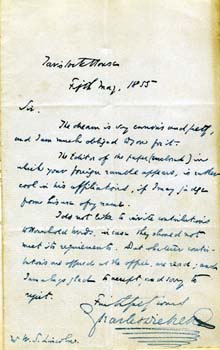 Tavistock House
Fifth May, 1855
Sir.
The dream is very curious and
and I am much obliged to you for it.
The Editor of the paper (enclosed) in
which your foreign ramble appears, is rather
cool in his, if I may judge
from his use of my name.
I do not like to invite contributions
to Household Words, in case they should not
meet its requirements. But the
contributions are offered at the office, are read; and
I am always glad to accept and sorry to
reject.
Faithfully yours
Charles Dickens
W. S. Lincoln.